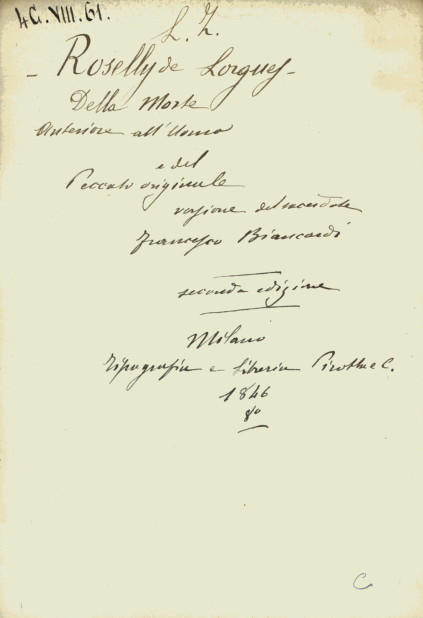 4G.VIII.61.
L. Z.
- Roselly de Lorgues -
Della Morte
Anteriore all'Uomo
e del
Peccato originale
versione del sacerdote
Francesco Biancardi
seconda edizione
Milano
Tipografia e libreria Pirotta e C.
1846
8º
C